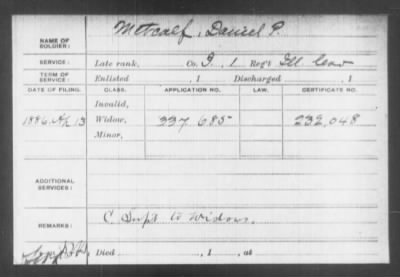 NAME OF SOLDIER: Metcalf, Daniel P.
SERVICE: Late rank, Co. I, 1 Reg't Ill Cav
TERM OF SERVICE: Enlisted , 1 Discharged , 1
DATE OF FILING. CLASS. APPLICATION NO. LAW. CERTIFICATE NO.
Invalid,
1886 Ap 13 Widow, 337.685 232.048
Minor,
ADDITIONAL SERVICES:
REMARKS: C to Widow.
Died , 1 , at